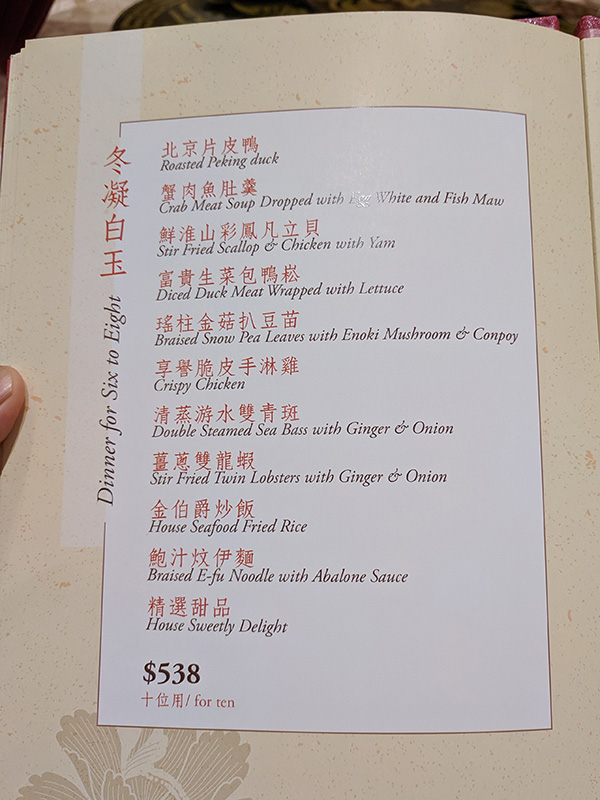 冬凝白玉
Dinner for Six to Eight
北京片皮鴨
Roasted Peking duck
蟹肉魚肚羹
Crab Meat Soup Dropped with Egg White and Fish Maw
鮮淮山彩鳳凡立貝
Stir Fried Scallop & Chicken with Yam
富貴生菜包鴨崧
Diced Duck Meat Wrapped with Lettuce
瑤柱金菇扒豆苗
Braised Snow Pea Leaves with Enoki Mushroom & Conpoy
享譽脆皮手淋雞
Crispy Chicken
清蒸游水雙青斑
Double Steamed Sea Bass with Ginger & Onion
薑蔥雙龍蝦
Stir Fried Twin Lobsters with Ginger & Onion
金伯爵炒飯
House Seafood Fried Rice
鮑汁炆伊麵
Braised E-fu Noodle with Abalone Sauce
精選甜品
House Sweetly Delight
$538
十位用/ for ten